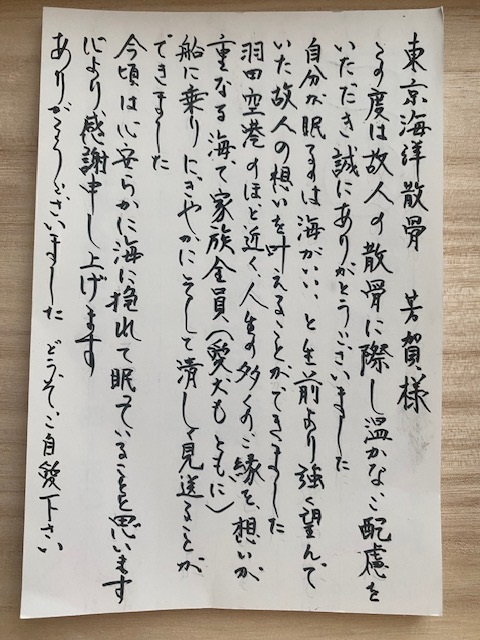 東京海洋散骨　芳賀様
この度は故人の散骨に際し温かなご配慮を
いただき誠にありがとうございました
自分が眠るのは海がいいと生前より強く望んで
いた故人の想いを叶えることができました
羽田空港のほど近く、人生の多くのご縁を、想いが
重なる海で家族全員（愛犬もともに）
船に乗りにぎやかにそして清しく見送ることが
できました
今頃は心安らかに海に抱れて眠っていることと思います
心より感謝申し上げます
ありがとうございました　どうぞご自愛下さい